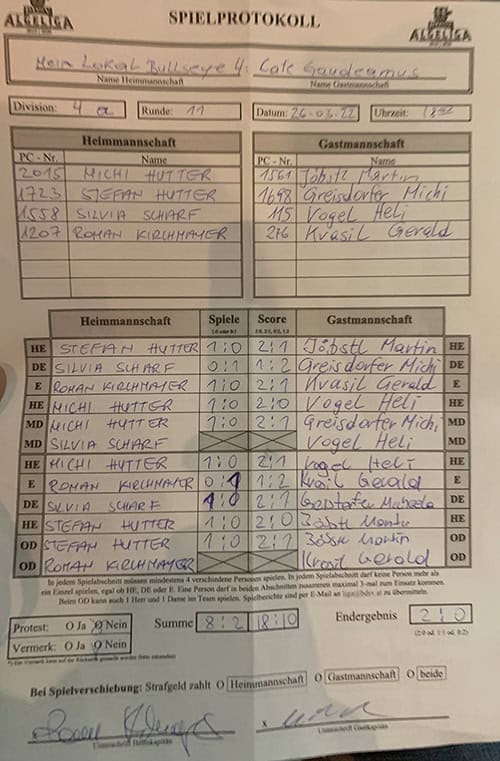 ALGELIGA SPIELPROTOKOLL ALGELIGA
Mein Lokal Bullseye 4 : Cafe Gaudeamus
Name Heimmannschaft Name Gastmannschaft
Division: 4 a Runde: 11 Datum: 26-03-22 Uhrzeit:
Heimmannschaft Gastmannschaft
PC - Nr. Name PC - Nr. Name
2015 MICHI HUTTER 1561 Jöbstl Martin
1723 STEFAN HUTTER 1698 Greisdorfer Michi
1558 SILVIA SCHARF 115 Vogel Heli
1207 ROMAN KIRCHMAYER 276 Kvasil Gerald
Heimmannschaft Spiele Score Gastmannschaft
1:0 oder 0:1 2:0, 2:1, 0:2, 1:2
HE STEFAN HUTTER 1:0 2:1 Jöbstl Martin HE
DE SILVIA SCHARF 0:1 1:2 Greisdorfer Michi DE
E ROMAN KIRCHMAYER 1:0 2:1 Kvasil Gerald E
HE MICHI HUTTER 1:0 2:0 Vogel Heli HE
MD MICHI HUTTER 1:0 2:1 Greisdorfer Michi MD
MD SILVIA SCHARF Vogel Heli MD
HE MICHI HUTTER 1:0 2:1 Vogel Heli HE
E ROMAN KIRCHMAYER 0:1 1:2 Gerald E
DE SILVIA SCHARF 1:0 2:1 DE
HE STEFAN HUTTER 1:0 2:0 Jöbstl Martin HE
OD STEFAN HUTTER 1:0 2:1 Jöbstl Martin OD
OD ROMAN KIRCHMAYER Gerald OD
In jedem Spielabschnitt müssen mindestens 4 verschiedene Personen spielen. In jedem Spielabschnitt darf keine Person mehr als
ein Einzel spielen, egal ob HE, DE oder E. Eine Person darf in beiden Abschnitten zusammen maximal 3-mal zum Einsatz kommen.
Beim OD kann auch 1 Herr und 1 Dame im Team spielen. Spielberichte sind per E-Mail an liga@bdsv.at zu übermitteln.
Protest: O Ja O Nein Summe 8:2 18:10 Endergebnis 2:0
Vermerk: O Ja O Nein (2:0 od. 1:1 od. 0:2)
*) Ein Vermerk kann auf der Rückseite gemacht werden
Bei Spielverschiebung: Strafgeld zahlt O Heimmannschaft O Gastmannschaft O beide
x
Unterschrift Heimkapitän Unterschrift Gastkapitän